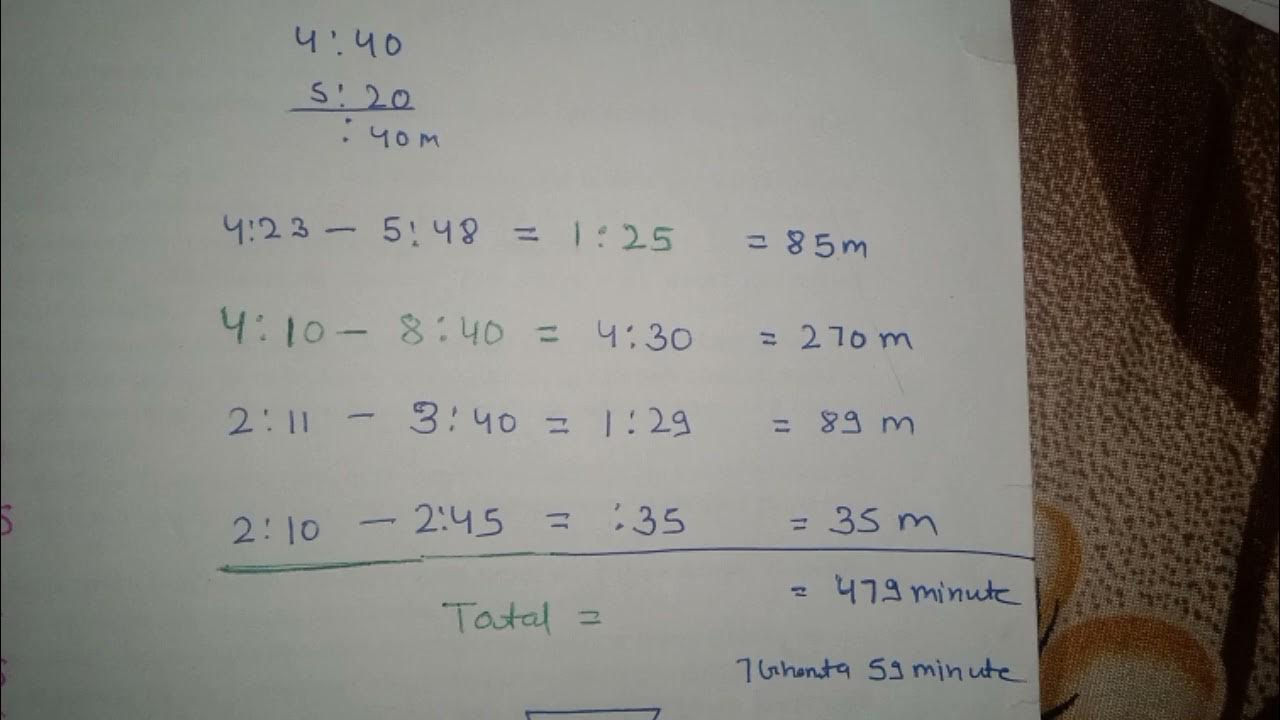 4:40
5:20
:40m
4:23 - 5:48 = 1:25 = 85m
4:10 - 8:40 = 4:30 = 270 m
2:11 - 3:40 = 1:29 = 89 m
2:10 - 2:45 = :35 = 35 m
= 479 minute
Total =
7 Ghanta 59 minute